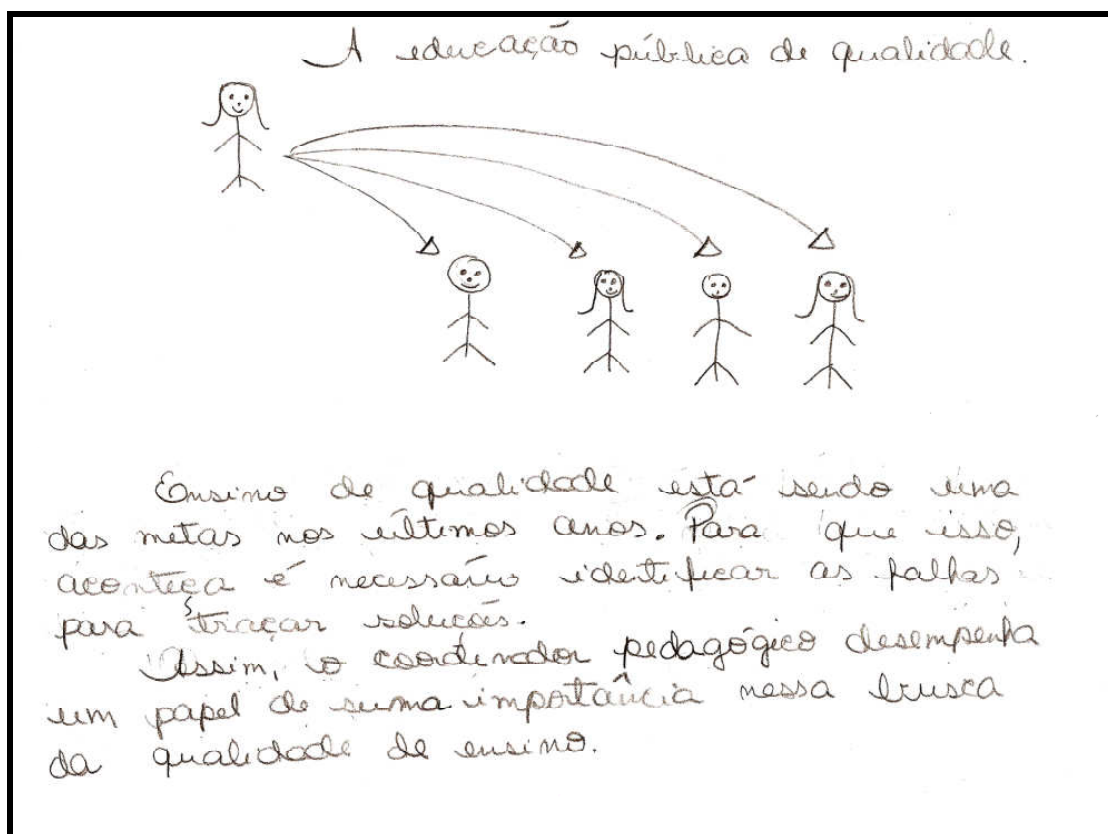 A educação pública de qualidade.
Ensino de qualidade está sendo uma
das metas nos últimos anos. Para que isso,
aconteça é necessário identificar as falhas
para traçar soluções.
Assim, o coordenador pedagógico desempenha
um papel de suma importância nessa busca
da qualidade de ensino.